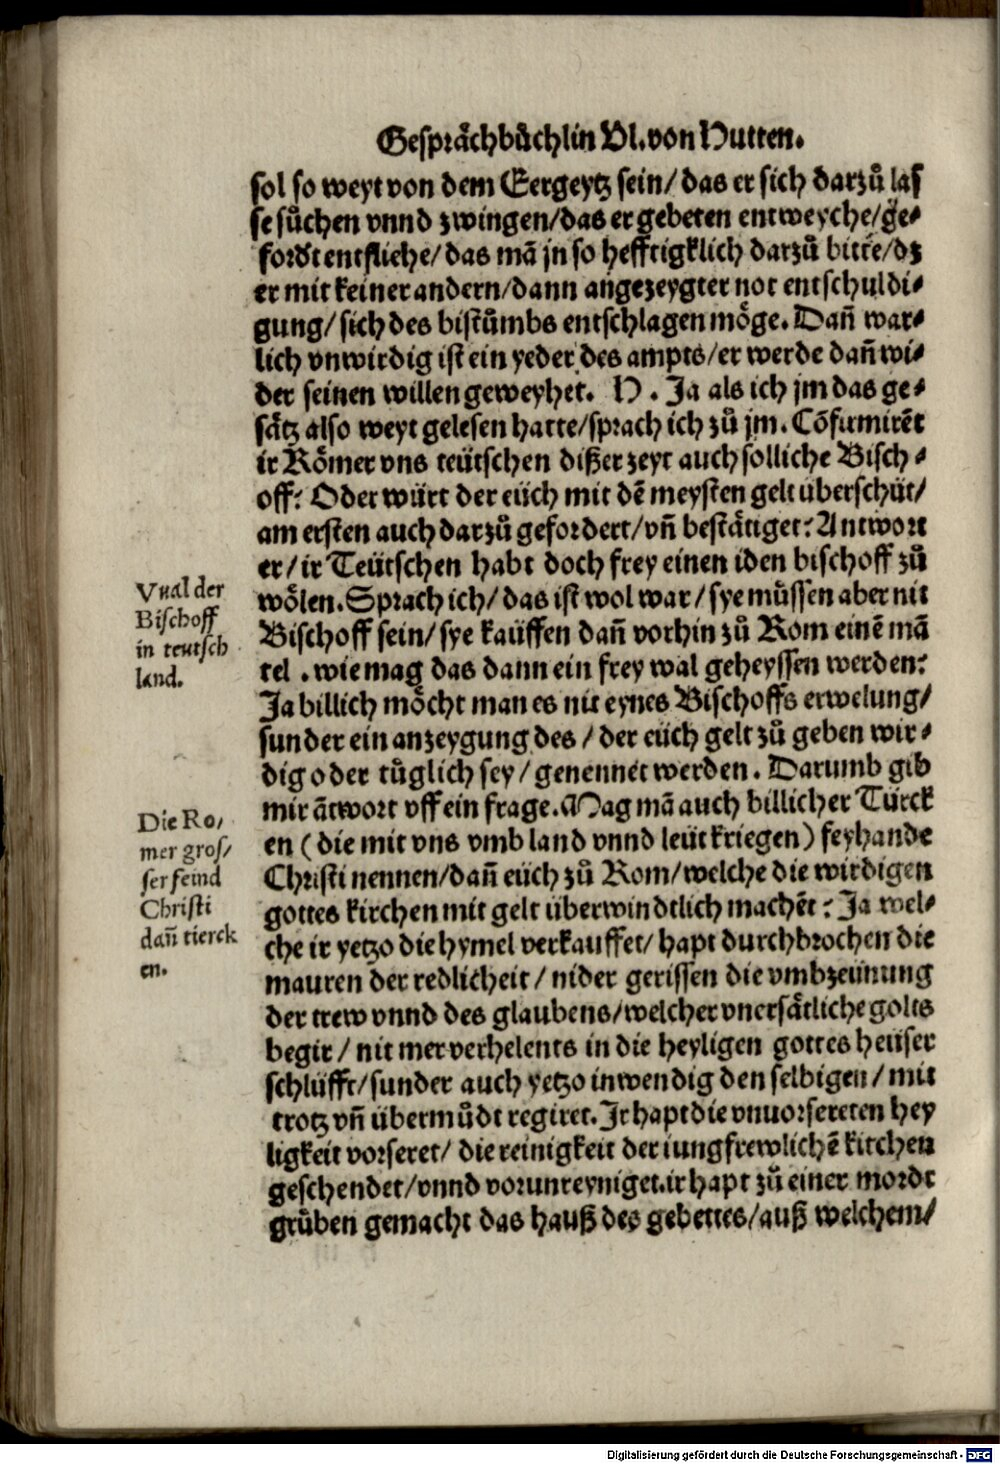 Gesprächbüchlin Vl. von Hutten.
sol so weyt von dem Eergeytz sein/ das er sich darzů las
se sůchen vnnd zwingen/das er gebeten entweyche/ge⸗
fordt entfliehe/ das mā jn so hefftigklich darzů bitte/dz
er mit keiner andern/dann angezeygter not entschuldi⸗
gung/ sich des bistůmbs entschlagen möge. Dañ war⸗
lich vnwirdig ist ein yeder des ampts/er werde dañ wi⸗
der seinen willen geweyhet. H. Ja als ich jm das ge⸗
sätz also weyt gelesen hatte/sprach ich zů jm. Cōfirmirēt
ir Römer vns teütschen dißer zeyt auch solliche Bisch⸗
off? Oder würt der eüch mit dē meysten gelt überschüt/
am ersten auch darzů gefordert/vñ bestätiget? Antwort
er/ ir Teütschen habt doch frey einen iden bischoff zů
wölen. Sprach ich/ das ist wol war/ sye müssen aber nit
Bischoff sein/ sye kauffen dañ vorhin zů Rom einē mā
tel. wie mag das dann ein frey wal geheyssen werden?
Ja billich möcht man es nit eynes Bischoffs erwelung/
sunder ein anzeygung des/ der eüch gelt zů geben wir⸗
dig oder tůglich sey/ genennet werden. Darumb gib
mir ātwort vff ein frage. Mag mā auch billicher Türck
en (die mit vns vmb land vnnd leüt kriegen) feyhande
Christi nennen/dañ eüch zů Rom/welche die wirdigen
gottes kirchen mit gelt überwindtlich machēt? Ja wel⸗
che ir yetzo die hymel verkauffet/ hapt durchbrochen die
mauren der redlicheit/ nider gerissen die vmbzeünung
der trew vnnd des glaubens/welcher vnersätliche golts
begir/ nit mer verhelents in die heyligen gottes heüser
schlüfft/sunder auch yetzo inwendig den selbigen/ mit
trotz vñ übermůdt regiret. Ir hapt die vnuorsereten hey
ligkeit vorseret/ die reinigkeit der iungfrewlichē kirchen
geschendet/vnnd vorunreyniget. ir hapt zů einer mordt
grůben gemacht das hauß des gebettes/auß welchem/
Vual der
Bischoff
in teutsch
land.
Die Ro/
mer gros/
ser feind
Christi
dañ tierck
en.
Digitalisierung gefördert durch die Deutsche Forschungsgemeinschaft - DFG